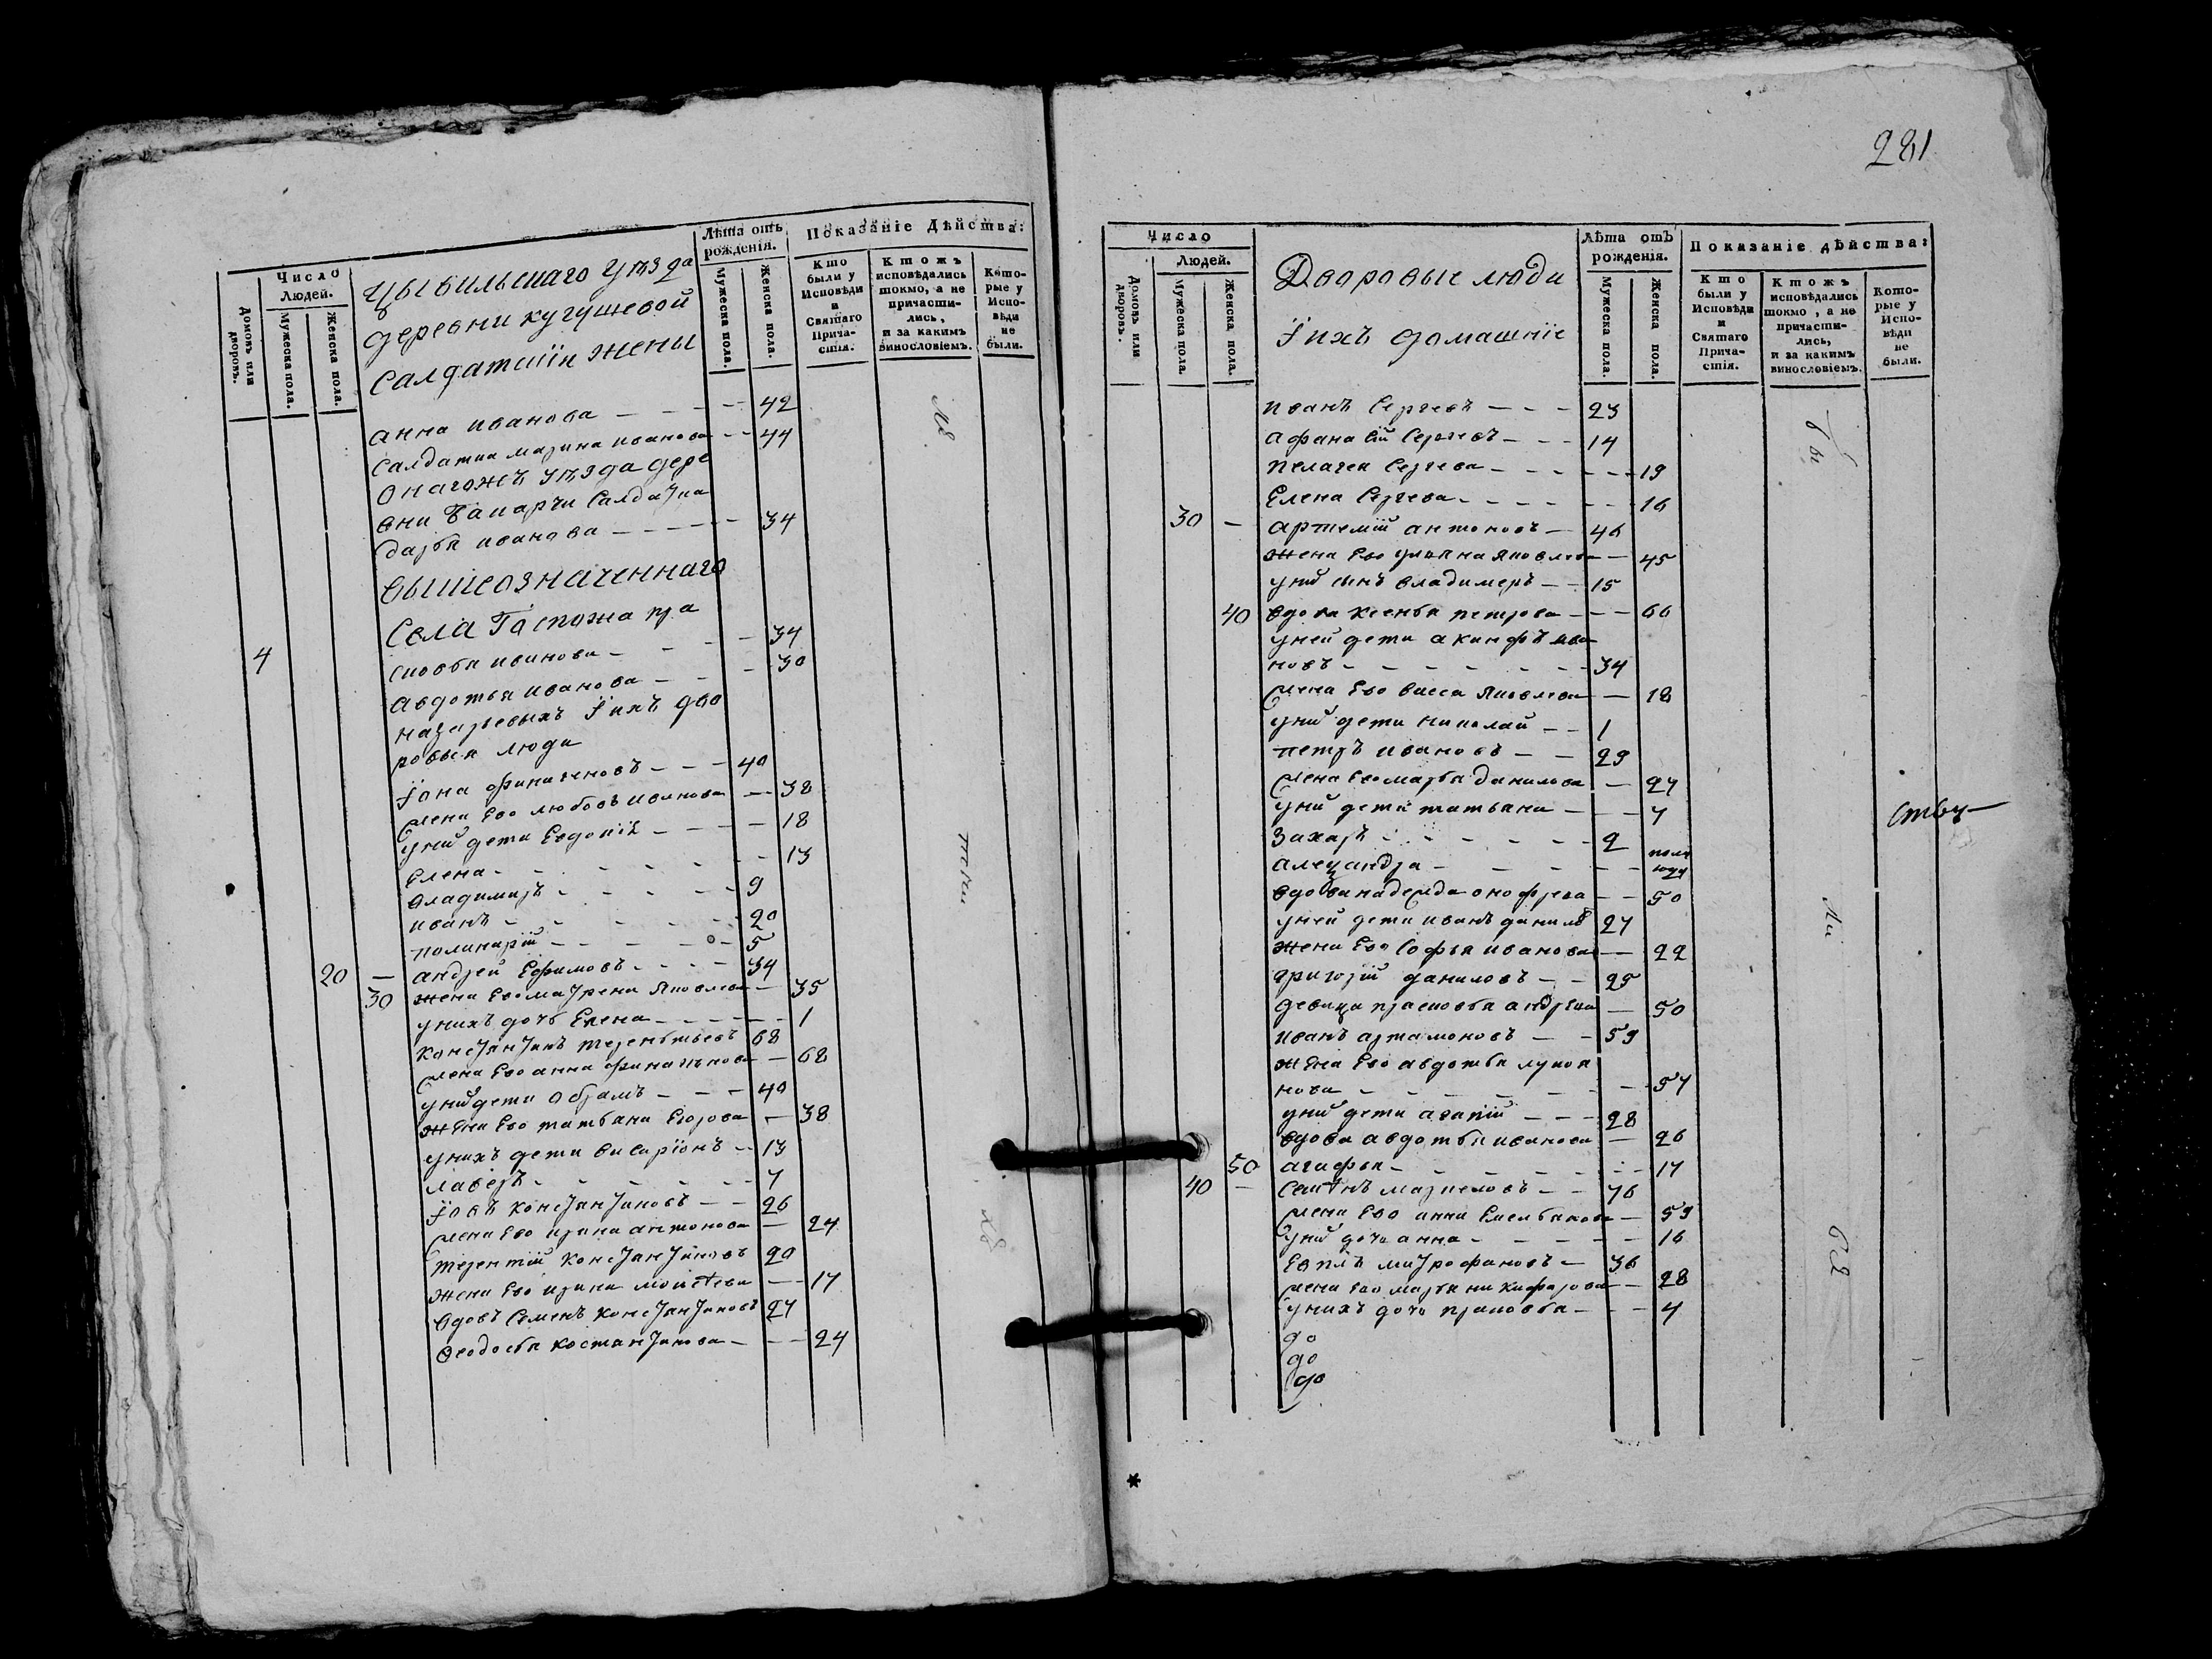 Число
Людей.
Домовъ или дворовъ.
Мужеска пола.
Женска пола.
Цывильскаго уѣзда
деревни кугушевой
Салдатскiи жены
Лѣта отъ рожденiя.
Мужеска пола.
Женска пола.
Показанiе Дѣйства:
Кто были у Исповѣди и Святаго Причастiя.
Ктожъ исповѣдались токмо, а не причастились, и за какимъ винословiемъ.
Которые у Исповѣди не были.
анна иванова - - - 42
Салдатка марина иванова - - 44
Онагожъ уѣзда дере
вни
дарья иванова - - - - 34
вышеозначеннаго
Села Госпожа пра
4 сковья иванова - - - 34
авдотья иванова - - - 30
назарьевыхъ Їихъ дво
ровыя люди
Їона финагеновъ - - - 40
жена Ево любовь иванова - - 38
унiй дети Евдокiя - - - 18
Елена - - - - 13
владимиръ - - - - 9
иванъ - - - - 20
полинарiй - - - - 5
20 — андрей Ефимовъ - - - 34
30 жена Ево матрена яковлева - 35
унихъ дочь Елена - - - - 1
константинъ терентьевъ 68
жена Ево анна финагенова - 68
унiй дети абрамъ - - - 40
жена Ево татьяна Егорова - 38
унихъ дети висарїонъ - - 13
лаверъ - - - - 7
Їовъ константиновъ - - 26
жена Ево ирина антонова - 24
терентiй константиновъ 20
жена Ево ирина моисѣева - - 17
вдовъ Семенъ константиновъ 27
Ѳеодосья костантинова - - - 24
281
Число
Людей.
Домовъ или дворовъ.
Мужеска пола.
Женска пола.
Дворовые люди
Їихъ домашнїе
Лѣта отъ рожденiя.
Мужеска пола.
Женска пола.
Показанiе дѣйства:
Кто были у Исповѣди и Святаго Причастiя.
Ктожъ исповѣдались токмо, а не причастились, и за какимъ винословiемъ.
Которые у Исповѣди не были.
иванъ Сергеевъ - - - 23
афанасiй Сергеевъ - - - 14
пелагея Сергева - - - - 19
Елена Сергева - - - - 16
30 — артемiй антоновъ - 46
жена Ево улияна яковлева - 45
унiй сынъ владимеръ - - 15
40 вдова ксенья петрова - - - 66
уней дети акинфъ ива
новъ - - - - - 34
жена Ево васса яковлева - 18
унiй дети николай - - 1
петръ ивановъ - - 29
жена Ево марья данилова - 27
унiй дети татьяна - - - 7
Захаръ - - - - - 2
александра - - - - пол года
вдова надежда онофрева - - 50
уней дети иванъ данилв 27
жена Ево Софья иванова - 22
григорiй даниловъ - - 25
девица прасковья андреева - 50
иванъ артамоновъ - - 59
жена Ево авдотья лукоя
нова - - - - - 57
унiй дети агапiй - - - 28
вдова авдотья иванова - 26
50 агафья - - - - - 17
40 — маркеловъ - - 76
жена Ево анна Емельянова - 59
унiй дочь анна - - - - 16
Евплъ митрофановъ - 36
жена Ево марья никифорова - 28
унихъ дочь прасковья - - - 4
до
до
до
*